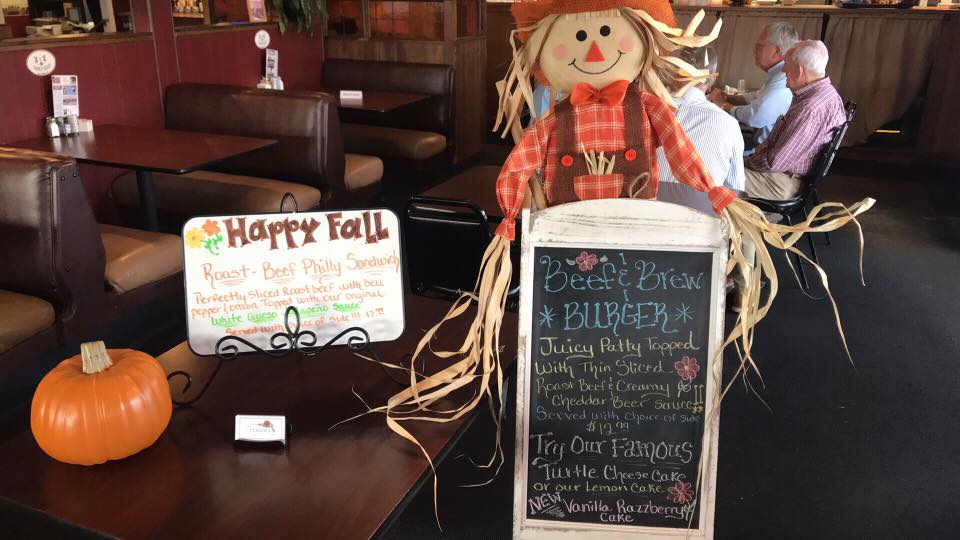 Happy Fall
Roast-Beef Philly Sandwich
Perfectly Sliced Roast beef with bell
pepper/onion Topped with our original
White Queso Sauce
Served with choice of side!!! 12.99
Beef & Brew
BURGER
Juicy Patty Topped
With Thin Sliced
Roast Beef & Creamy
Cheddar Beer Sauce!!
Served with Choice of side
$12.99
Try Our Famous
Turtle Cheese Cake
or our Lemon Cake
NEW Vanilla Razzberry
Cake